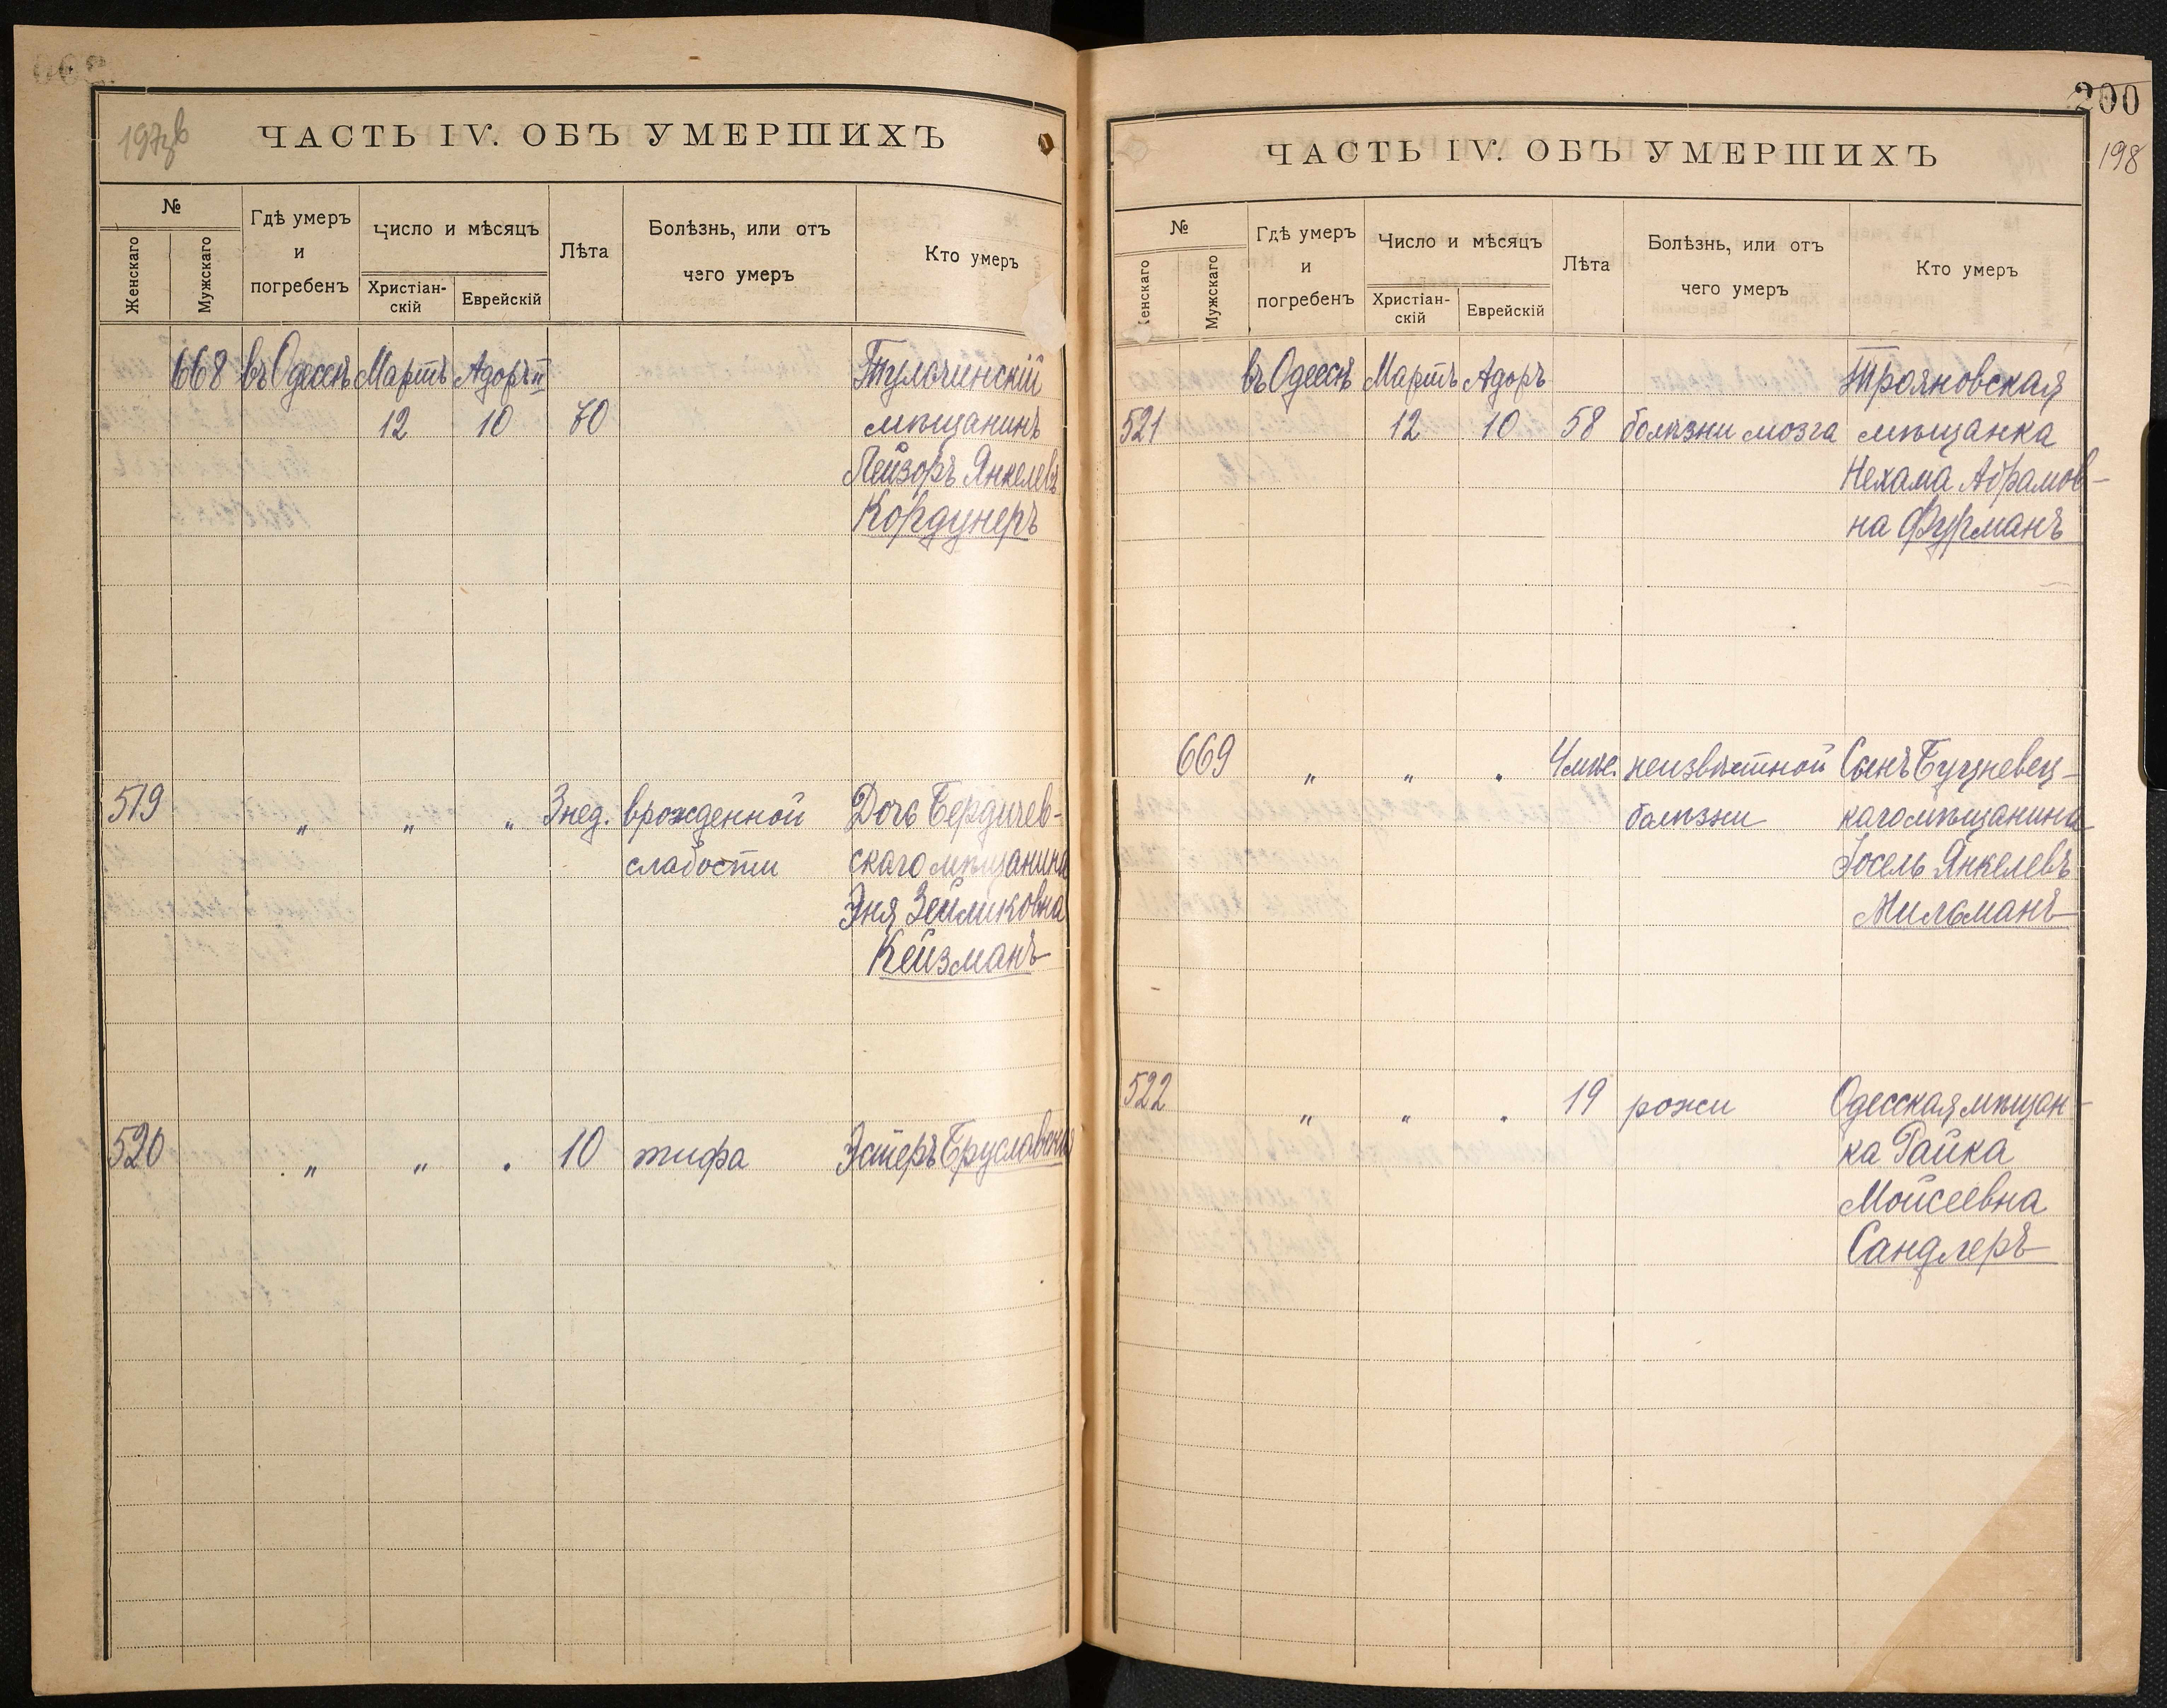 197об
ЧАСТЬ IV. ОБЪ УМЕРШИХЪ
№
Женскаго
Мужскаго
Гдѣ умеръ
и
погребенъ
Число и мѣсяцъ
Христіан-
скій
Еврейскій
Лѣта
Болѣзнь, или отъ
чего умеръ
Кто умеръ
668 въ Одессѣ Мартъ Адоръ II Тульчинскій
12 10 70 мѣщанинъ
Лейзоръ Янкелевъ
Кордунеръ
519 „ „ „ 3 нед. врожденной Дочь Бердичев-
слабости скаго мѣщанина
Эня Зейликовна
Кейзманъ
520 „ „ „ 10 тифа Эстеръ Бруславская
200
198
ЧАСТЬ IV. ОБЪ УМЕРШИХЪ
№
Женскаго
Мужскаго
Гдѣ умеръ
и
погребенъ
Число и мѣсяцъ
Христіан-
скій
Еврейскій
Лѣта
Болѣзнь, или отъ
чего умеръ
Кто умеръ
въ Одессѣ Мартъ Адоръ Трояновская
521 12 10 58 болѣзни мозга мѣщанка
Нехама Абрамов-
на Фурманъ
669 „ „ „ 4 мѣс. неизвѣстной Сынъ Буцневец-
болѣзни каго мѣщанина
Іосель Янкелевъ
Мильманъ
522 „ „ „ 19 рожи Одесская мѣщан-
ка Райка
Мойсеевна
Сандлеръ